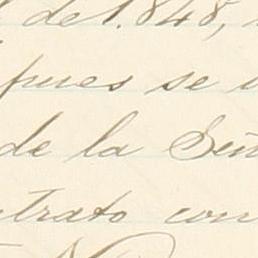 de 1.848,
pues se
de la Señ
trato con